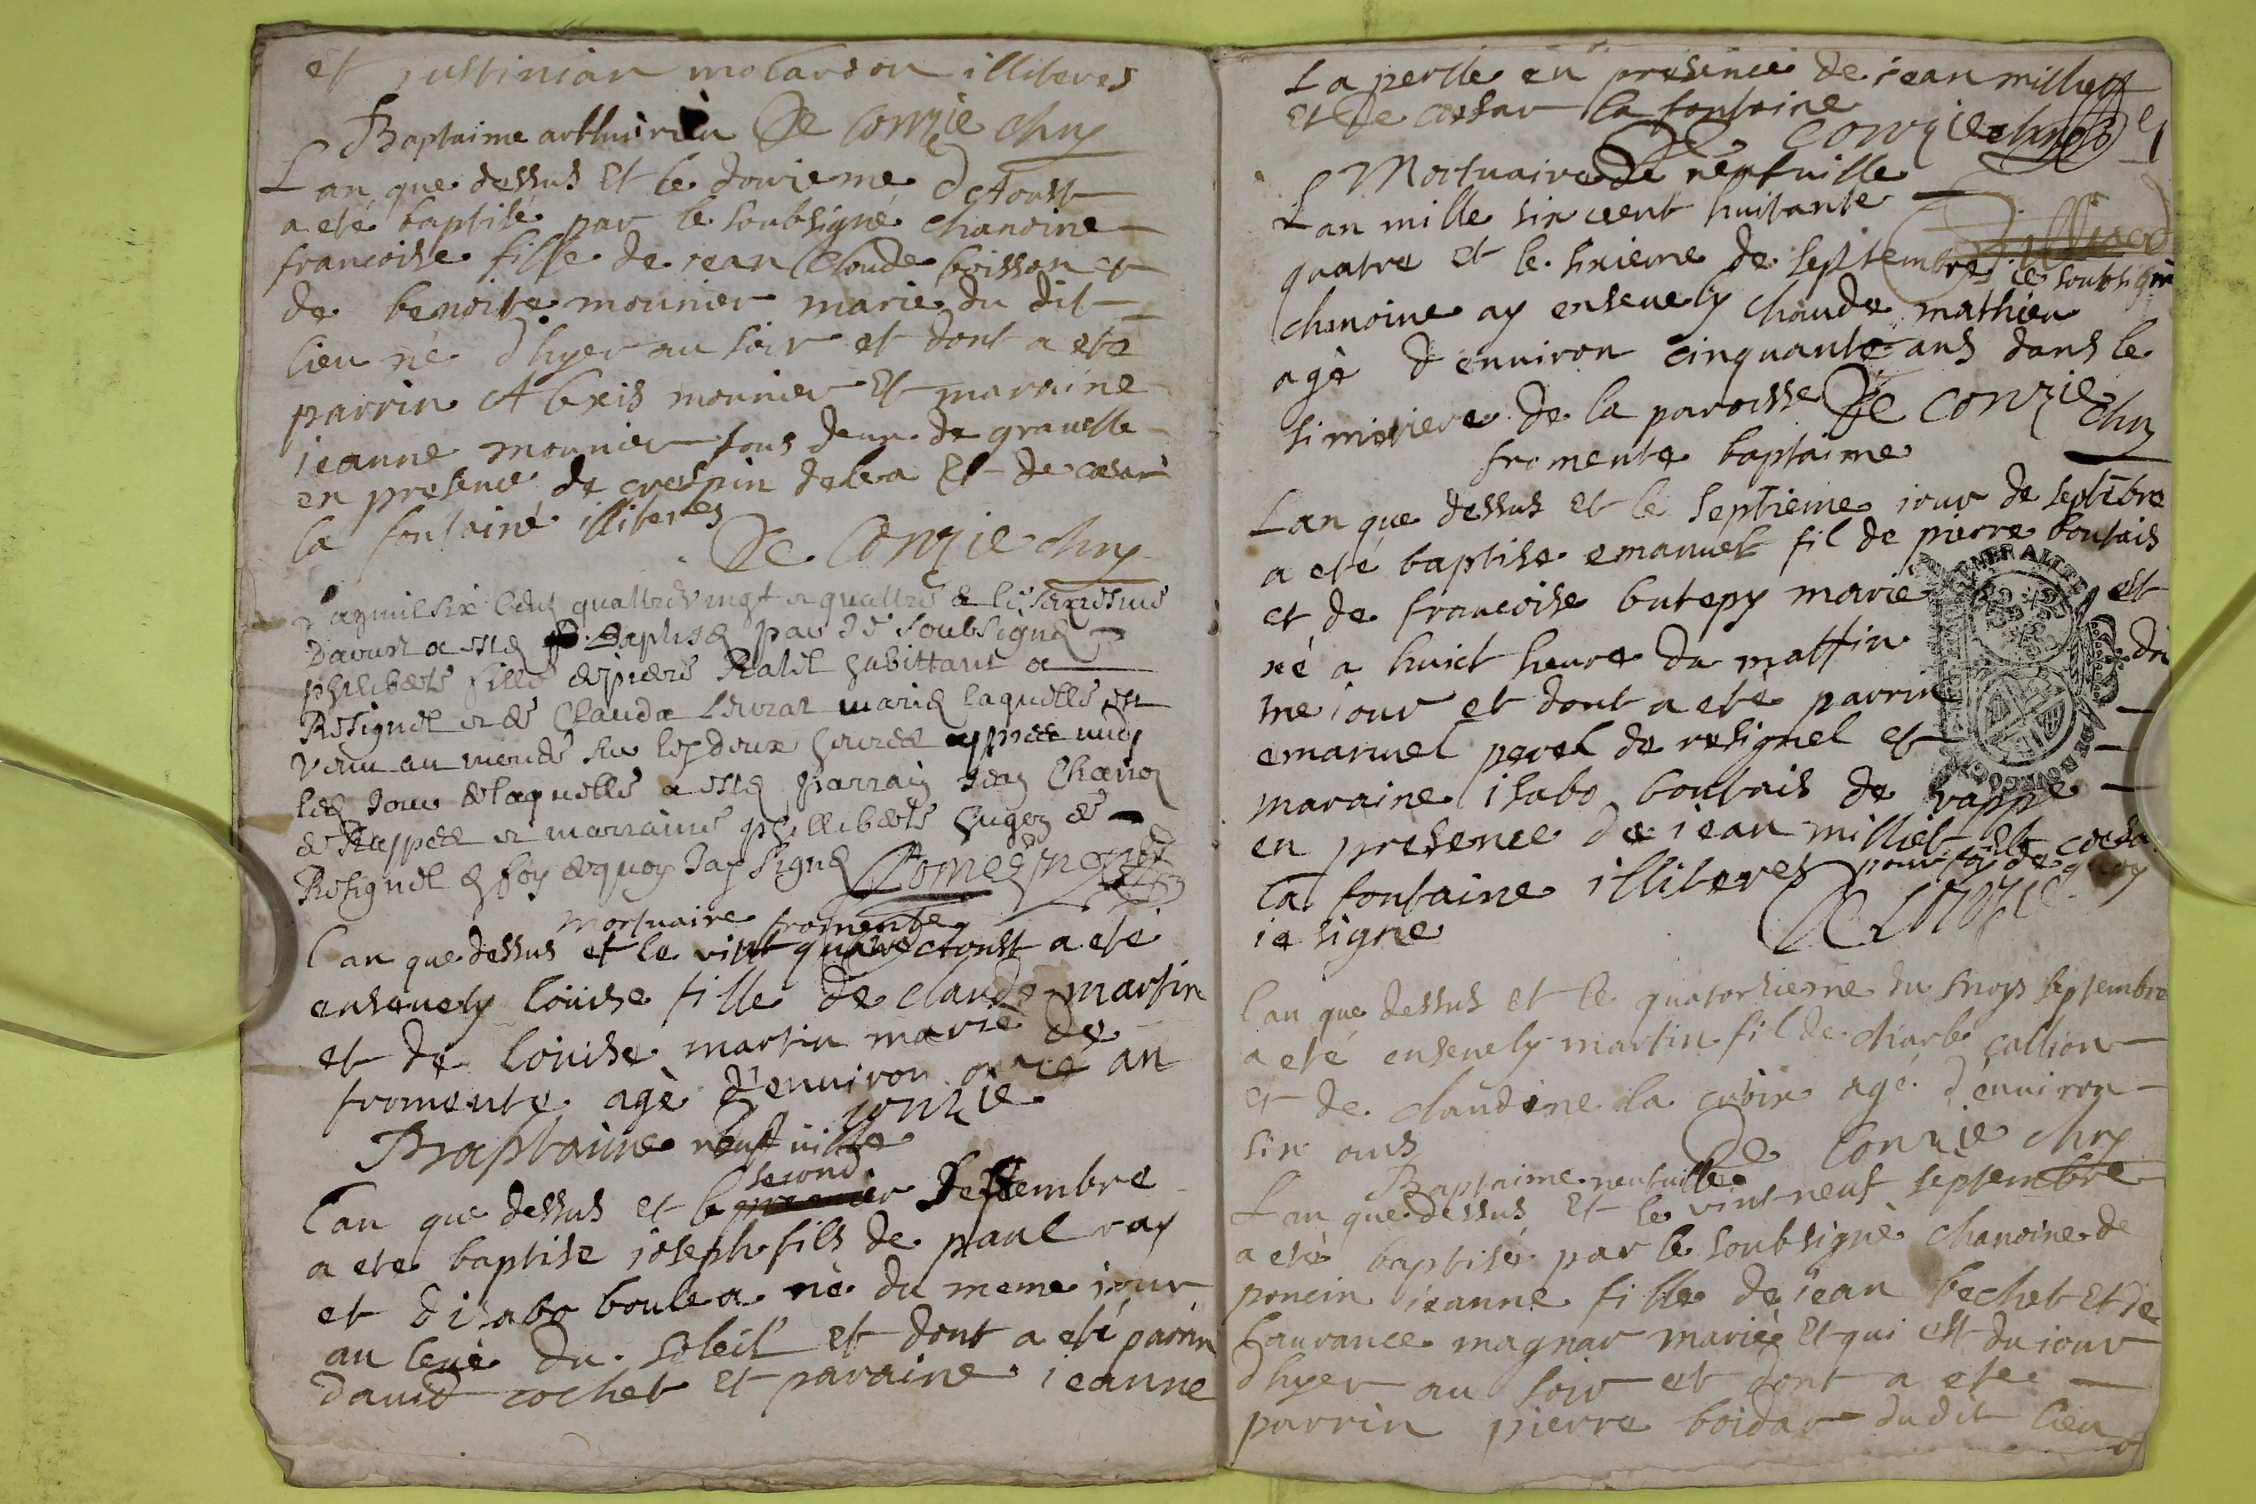 et justinian molardon illiteres
Baptaime De Conzie chn
Lan que dessus et le douzieme d Aoust
a eté baptisé par le soubsigné chanoine
francoise fille de jean Cloude boisson et
de benoite mounier marié du dit
lieu né d hyer au soir et dont a eté
parrin Alexis mounier et maraine
jeanne mounier tous deux de grauelle
en presence de crespin delea et de cæsar
la fontaine illiteres
De Conzie chn
quattre vingt et quattre &
Davust a esté Baptisé par Je soubsigné
philiberte fille de piere habittant a
Resignel et de Clauda marié laquelle est
venu au monde sur les deux heures appres midy
jour de laquelle a esté parrain
de Rappe et marraine philliberte de
Resignel foy de quoy Jay signé
mortuaire fromente
lan que dessus et le vint quatre Aoust a eté
enseuely louise fille de claude martin
et de louise martin marié de
fromente agè d'enuiron onze an
conzie
Baptaime neufville
second
lan que dessus et le premier Septembre
a ete baptise joseph fils de paul ray
et d isabo boulea né du meme jour
au leué du soleil et dont a eté parrin
dauid cochet et paraine jeanne
la perlle en presence de jean milliet
et de cæsar la fontaine
De Conzie
Mortuaire de neufuille
Lan mille six cent huitante
quatre et le sixieme de septembre je soubsigné
chanoine ay enseuely claude mathieu
agè d enuiron cinquante ans dans le
simitiere de la paroisse De Conzie chn
fromente baptaime
Lan que dessus et le septieme jour de septebre
a eté baptise emanuel fil de pierre boutais
et de francoise butepy marié et
né a huict heure du mattin du
me jour et dont a eté parrin
emanuel perel de resignel et
maraine isabo boutais de rappe
en presence de jean milliet et coesa
la fontaine illiteres pour foy de quoy
je signe De Conzie
lan que dessus et le quatorzieme du moys septembre
a eté enseuely martin fil de charle callion
et de claudine la cubin agé d'enuiron
six ans De Conzie chn
Baptaime neufuille
Lan que dessus et le vint neuf septembre
a eté baptisé par le soubsigné chanoine de
poncin jeanne fille de jean bechet et de
laurance magnar marié et qui est du jour
d hyer au soir et dont a ete
parrin pierre boidar dudit lieu